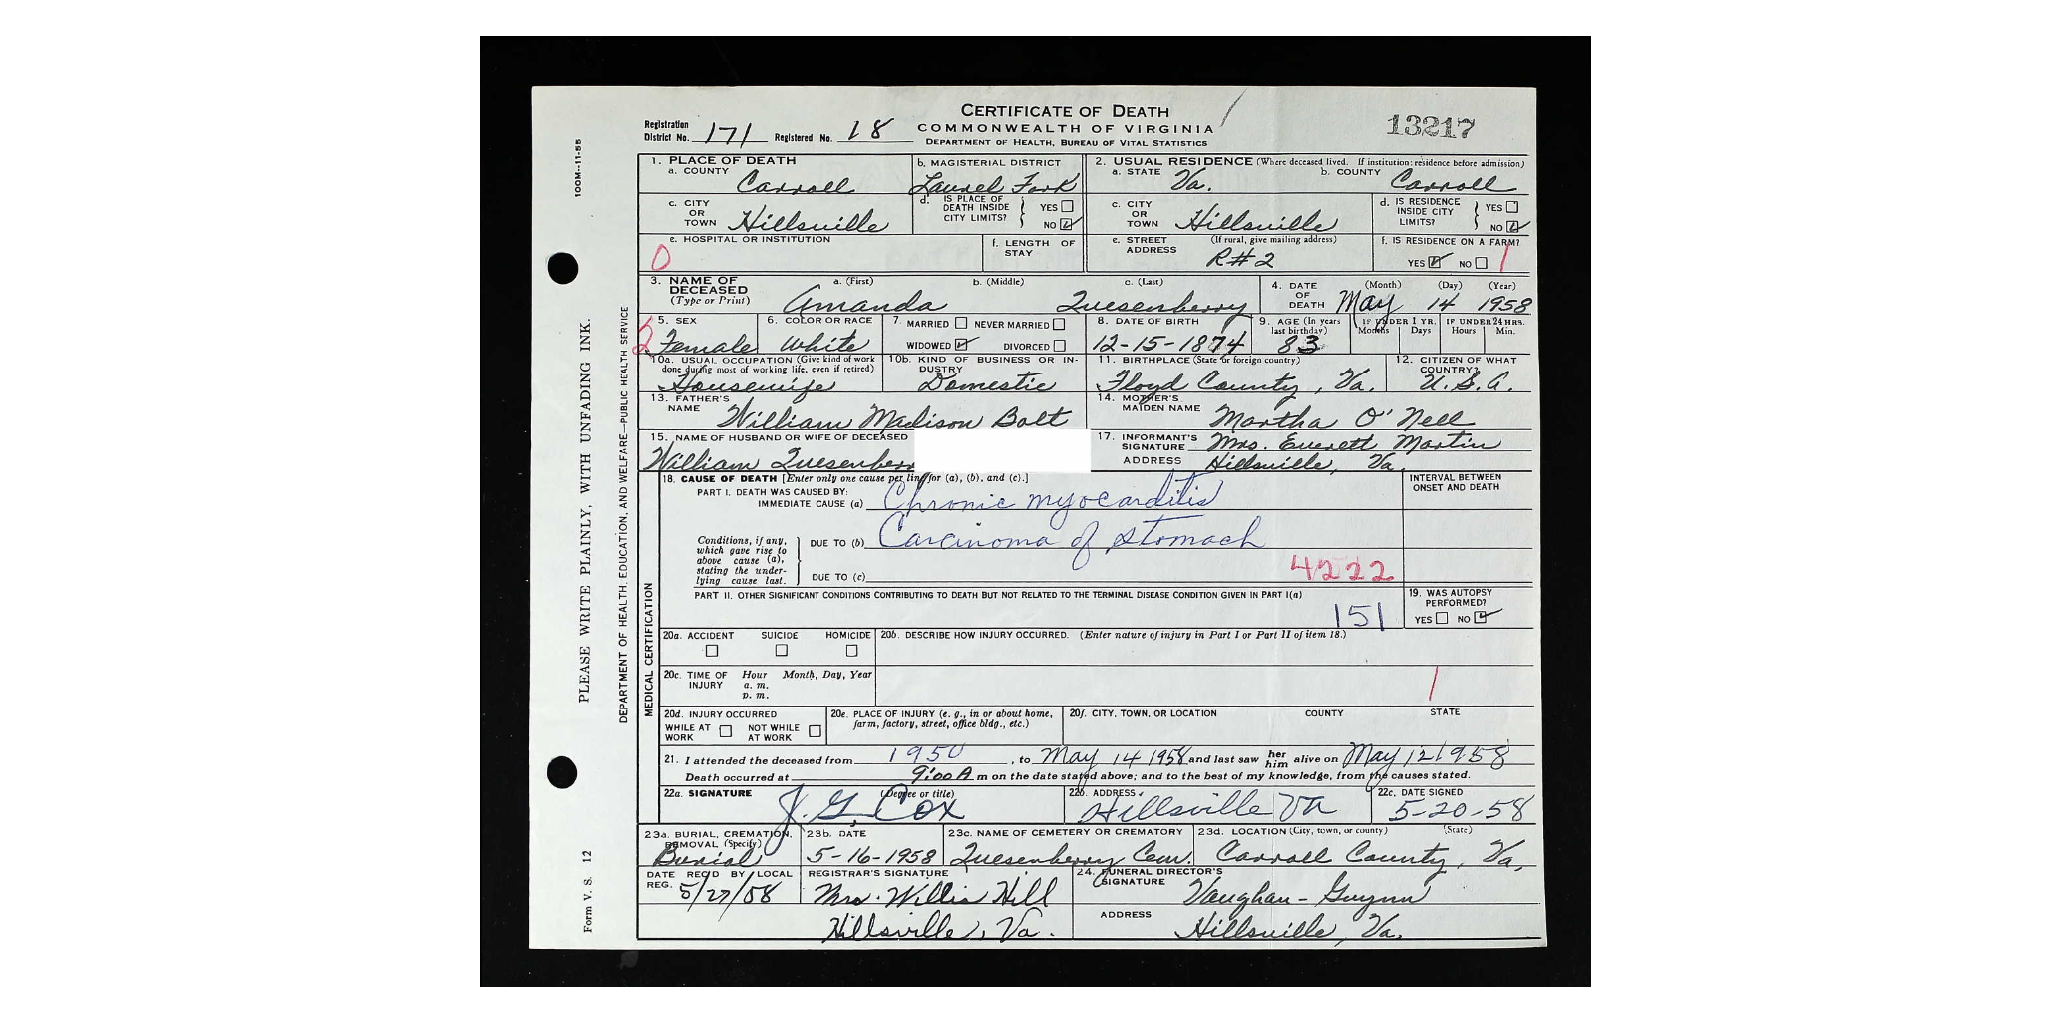 CERTIFICATE OF DEATH
COMMONWEALTH OF VIRGINIA
DEPARTMENT OF HEALTH, BUREAU OF VITAL STATISTICS
Registration District No. 171 Registered No. 18
13217
100M—11-55
PLEASE WRITE PLAINLY, WITH UNFADING INK.
DEPARTMENT OF HEALTH, EDUCATION, AND WELFARE—PUBLIC HEALTH SERVICE
Form V. S. 12
1. PLACE OF DEATH
a. COUNTY Carroll
b. MAGISTERIAL DISTRICT Laurel Fork
2. USUAL RESIDENCE (Where deceased lived. If institution: residence before admission)
a. STATE Va.
b. COUNTY Carroll
c. CITY OR TOWN Hillsville
d. IS PLACE OF DEATH INSIDE CITY LIMITS? YES NO
c. CITY OR TOWN Hillsville
d. IS RESIDENCE INSIDE CITY LIMITS? YES NO
e. HOSPITAL OR INSTITUTION
0
f. LENGTH OF STAY
e. STREET ADDRESS (If rural, give mailing address) R#2
f. IS RESIDENCE ON A FARM? YES NO 1
3. NAME OF DECEASED (Type or Print)
a. (First) b. (Middle) c. (Last)
Amanda Quesenberry
4. DATE OF DEATH (Month) (Day) (Year)
May 14 1958
2
5. SEX Female
6. COLOR OR RACE White
7. MARRIED NEVER MARRIED
WIDOWED DIVORCED
8. DATE OF BIRTH 12-15-1874
9. AGE (In years last birthday) 83
IF UNDER 1 YR. Months Days
IF UNDER 24 HRS. Hours Min.
10a. USUAL OCCUPATION (Give kind of work done during most of working life, even if retired) Housewife
10b. KIND OF BUSINESS OR INDUSTRY Domestic
11. BIRTHPLACE (State or foreign country) Floyd County, Va.
12. CITIZEN OF WHAT COUNTRY? U.S.A.
13. FATHER'S NAME William Madison Bolt
14. MOTHER'S MAIDEN NAME Martha O'Nell
15. NAME OF HUSBAND OR WIFE OF DECEASED
William Quesenberr
17. INFORMANT'S SIGNATURE Mrs. Everett Martin
ADDRESS Hillsville, Va.
MEDICAL CERTIFICATION
18. CAUSE OF DEATH [Enter only one cause per line for (a), (b), and (c).]
INTERVAL BETWEEN ONSET AND DEATH
PART I. DEATH WAS CAUSED BY:
IMMEDIATE CAUSE (a) Chronic myocarditis
Conditions, if any, which gave rise to above cause (a), stating the underlying cause last.
DUE TO (b) Carcinoma of stomach
DUE TO (c) 4222
PART II. OTHER SIGNIFICANT CONDITIONS CONTRIBUTING TO DEATH BUT NOT RELATED TO THE TERMINAL DISEASE CONDITION GIVEN IN PART I(a)
151
19. WAS AUTOPSY PERFORMED?
YES NO
20a. ACCIDENT SUICIDE HOMICIDE
20b. DESCRIBE HOW INJURY OCCURRED. (Enter nature of injury in Part I or Part II of item 18.)
20c. TIME OF INJURY Hour a. m. p. m. Month, Day, Year
1
20d. INJURY OCCURRED
WHILE AT WORK NOT WHILE AT WORK
20e. PLACE OF INJURY (e. g., in or about home, farm, factory, street, office bldg., etc.)
20f. CITY, TOWN, OR LOCATION COUNTY STATE
21. I attended the deceased from 1950, to May 14 1958 and last saw her him alive on May 12 1958
Death occurred at 9:00 A m on the date stated above; and to the best of my knowledge, from the causes stated.
22a. SIGNATURE (Degree or title) J. G. Cox
22b. ADDRESS Hillsville Va
22c. DATE SIGNED 5-20-58
23a. BURIAL, CREMATION, REMOVAL (Specify) Burial
23b. DATE 5-16-1958
23c. NAME OF CEMETERY OR CREMATORY Quesenberry Cem.
23d. LOCATION (City, town, or county) (State) Carroll County, Va.
DATE REC'D BY LOCAL REG. 5/27/58
REGISTRAR'S SIGNATURE
Mrs. Willie Hill
Hillsville, Va.
24. FUNERAL DIRECTOR'S SIGNATURE Vaughan-Guynn
ADDRESS Hillsville, Va.